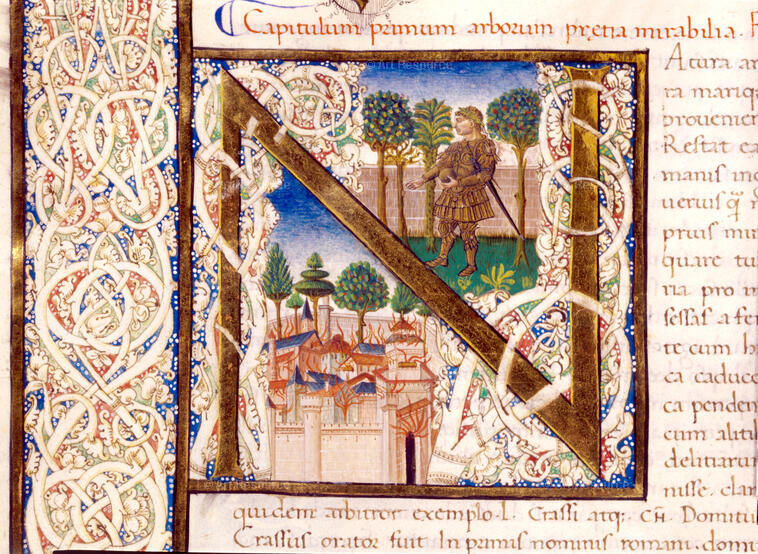 Capitulum primum arborum p̨retia mirabilia.
N
Atura ar
ra mariq
prouenier
Restat ea
manis inc
uerius q̃
prius mir
quare tu
ria pro in
sessas a fer
te cum h
ca caduce
ca penden
cum alitil
delitiarun
nisse. clar
quidem arbitror exemplo. L. Crassi atq; CN. Domitu
Crassus orator fuit In primis nominis romani. domu
© Art Resource